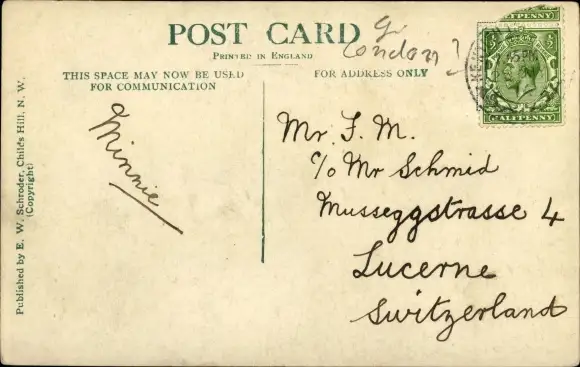 POST CARD
PRINTED IN ENGLAND
London
THIS SPACE MAY NOW BE USED
FOR COMMUNICATION
FOR ADDRESS ONLY
HALFPENNY
HALFPENNY
Minnie
Mr. F. M.
c/o Mr Schmid
Musseggstrasse 4
Lucerne
Switzerland
Published by E. W. Schroder, Child's Hill, N. W.
(Copyright)